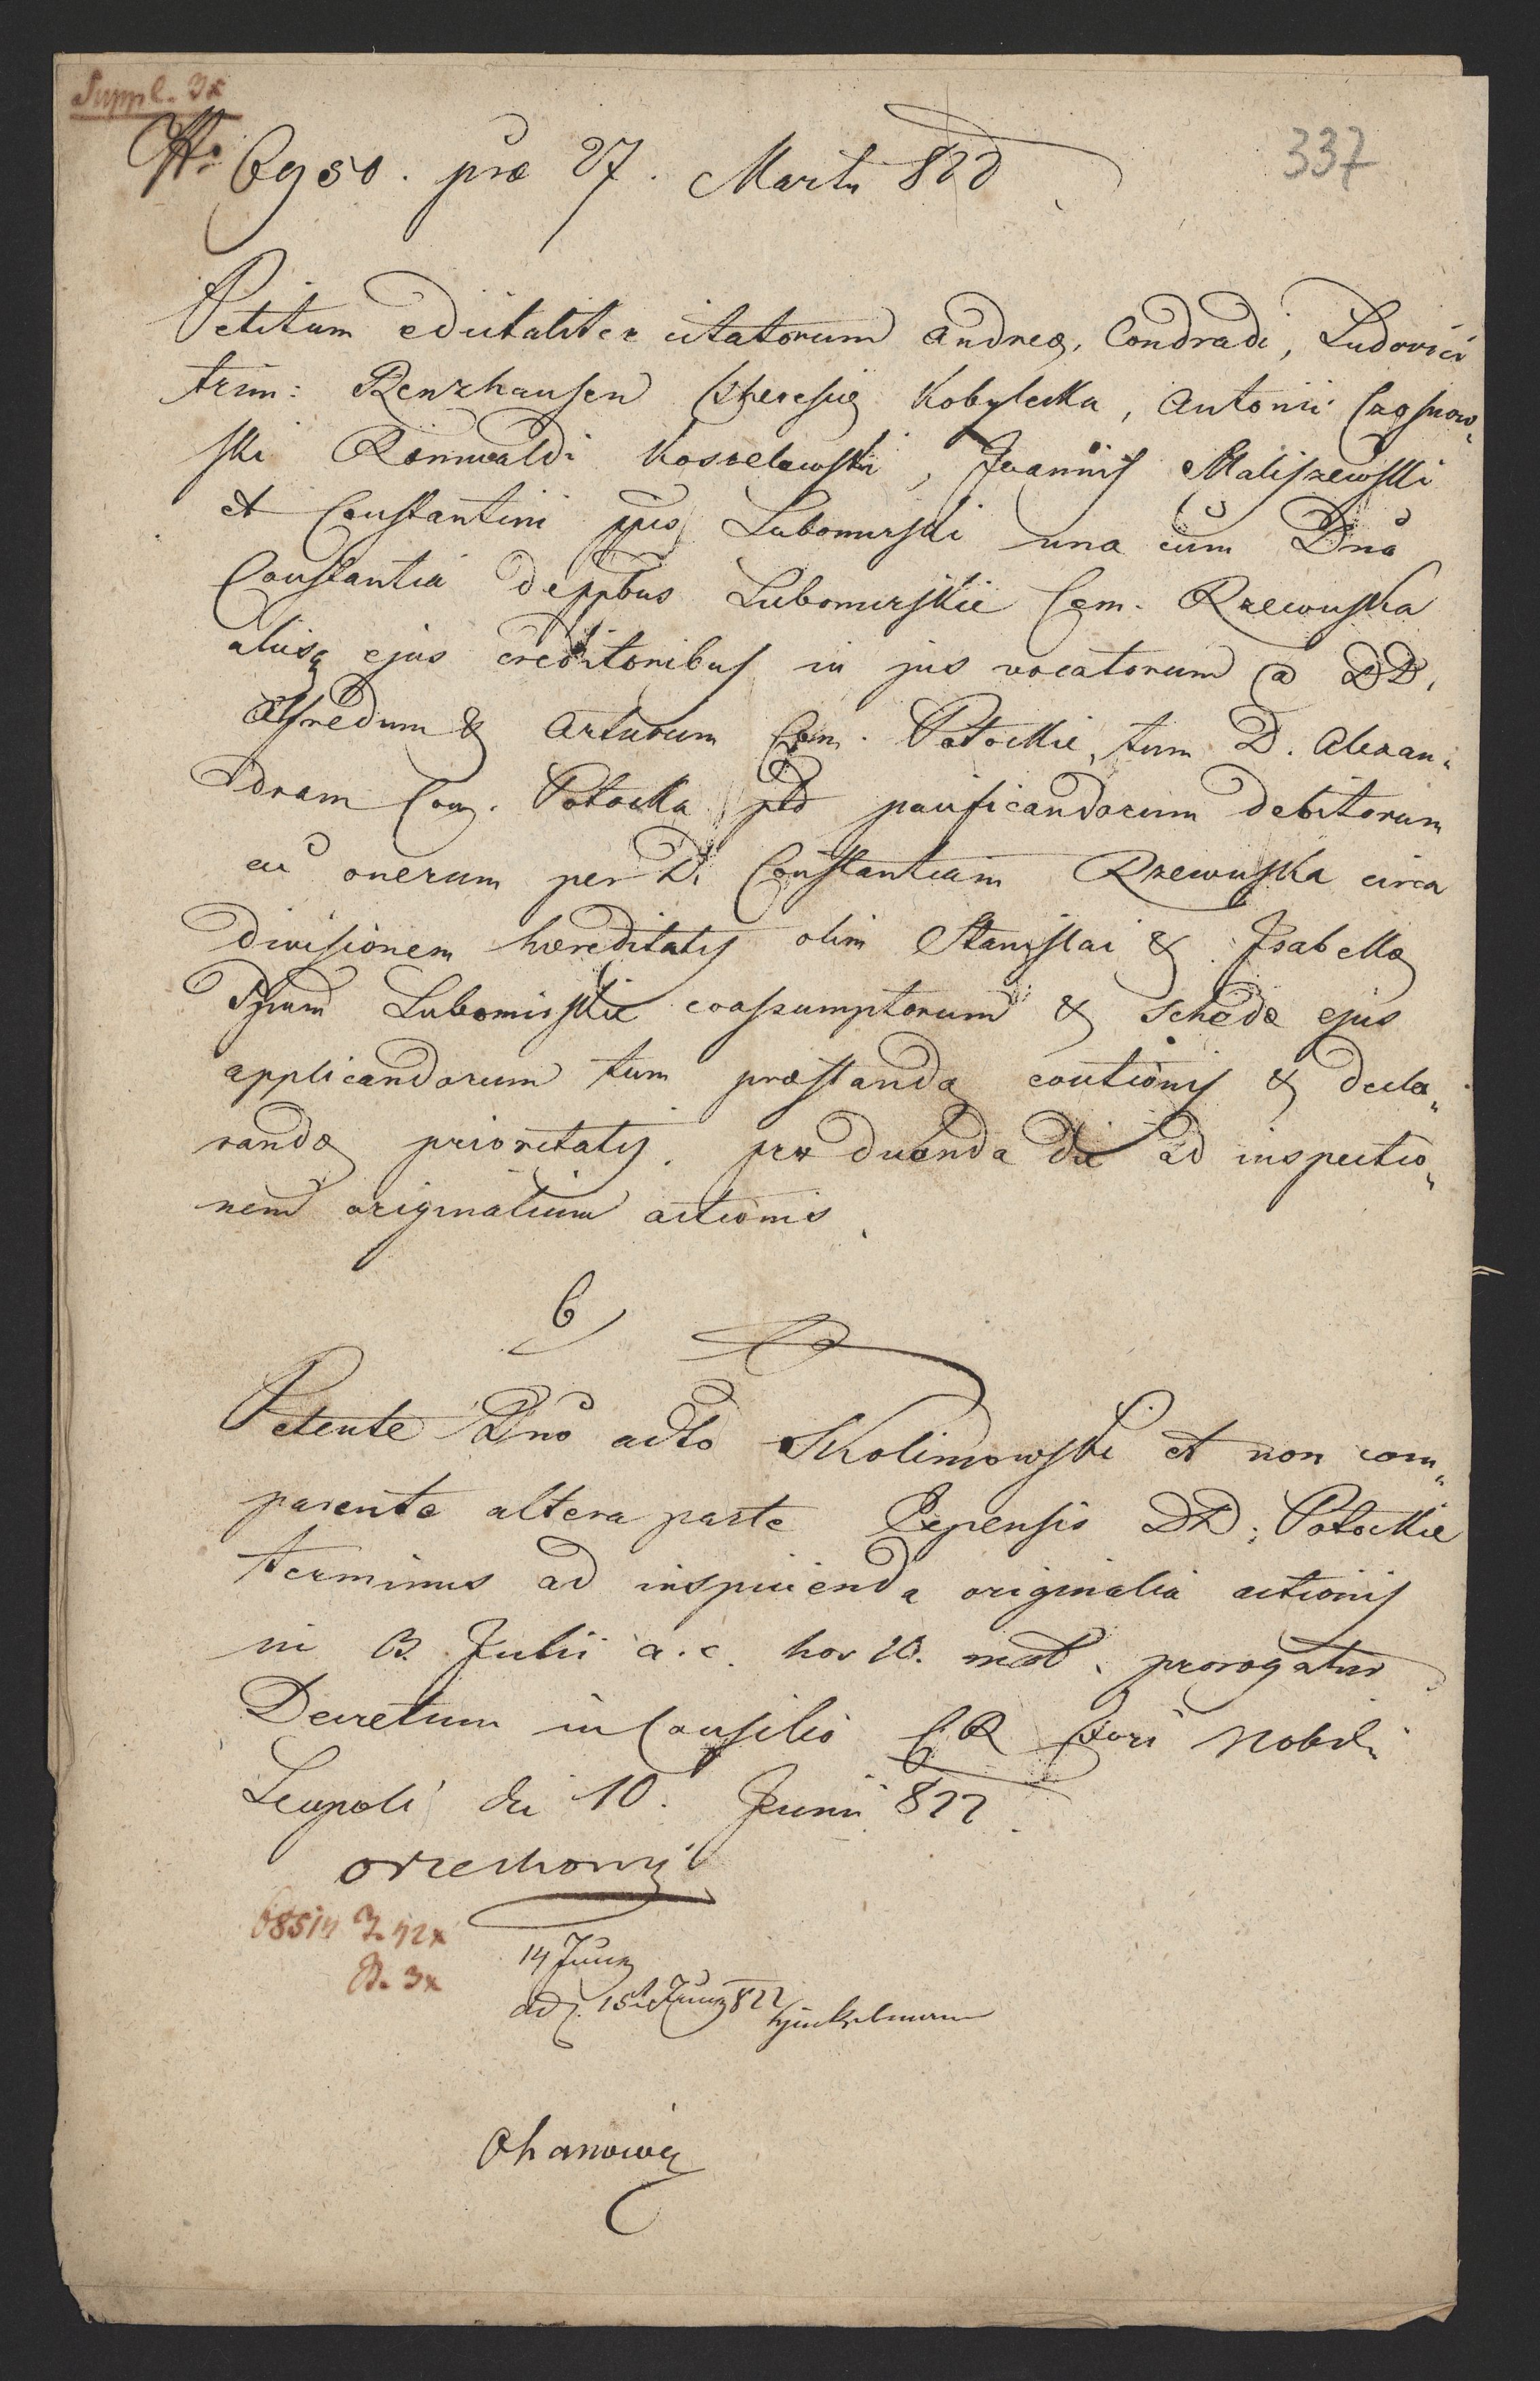 Suppl. 3x
337
No 6950. prae 27. Martii 822
Petitum edictaliter citatorum Andreae, Condradi, Ludovici
trim: Renzhausen Theresiae Kobylecka, Antonii
ski Romualdi Kosselewski, Joannis Maliszewski
et Constantini ppis Lubomirski una cum Dna
Constantia de ppbus Lubomirskie Com. Rzewuska
aliisq ejus creditoribus in jus vocatorum a DD.
Alfredum & Arturum Com. Potockie, tum D. Alexan„
dram Com. Potocka pto pacificandorum debitorum
ac onerum per D. Constantiam Rzewuska circa
divisionem haereditatis olim Stanislai & Isabellae
Ppum Lubomirskie coassumptorum & schedae ejus
applicandorum tum praestandae cautionis & decla„
randae prioritatis. pro ducenda die ad inspectio„
nem originalium actionis.
Petente Dno adto Skolimowski et non com„
parente altera parte Expensis DD. Potockie
terminus ad inspicienda originalia actionis
in 3. Julii a. c. hor 10. mat. prorogatur
Decretum in Consilio C R Fori Nobil.
Leopoli die 10. Junii 822.
Orzechowij
14 Juny
adj. 15t Juny 822
Ohanowicz